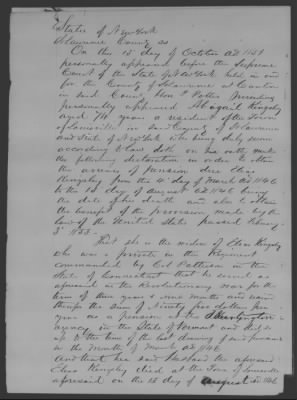 State of New York
St Lawrence County ss
On this 15 day of October AD 1851
personally appeared before the Supreme
Court of the State of New York held in and
for the County of St Lawrence at Canton
in said County
personally appeared Abigail Kingsley
aged 74 years a resident of the Town
of Louisville in said County of St Lawrence
and State of New York who being duly sworn
according to law doth on her oath make
the following declaration in order to obtain
the arrears of pension due Elias
Kingsley from the 4 day of March AD 1846
to the 15 day of August AD 1846 being
the date of his death and also to obtain
the benefit of the provision made by the
law of the United States passed February
3 1853
That she is the widow of Elias Kingsley
who was a private in the Regiment
commanded by Col in the
State of Connecticut that he served as
aforesaid in the Revolutionary war for the
term of three years months and drew
therefor the sum of Ninety five dollars per
year as a pension at the Burlington
agency in the State of Vermont and did so
up to the time of the last drawing of said pension
in the month of March AD 1846
And that her said husband the aforesaid
Elias Kingsley died at the Town of Louisville
aforesaid on the 15 day of August AD 1846